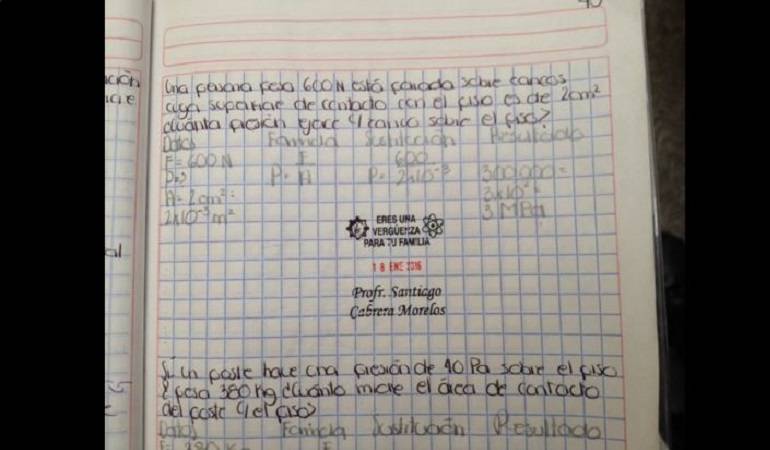 ción
cie
Una persona pesa 600 N está parada sobre tancos
cuya superficie de contacto con el piso es de 2cm²
cuánta presión ejerce c/tanco sobre el piso?
Datos Formula Sustitución Resultado
F= 600 N F 600
P=? P= A P= 2x10⁻³ 300,000=
A= 2cm²= 3x10
2x10⁻³m² 3 MPa
ERES UNA
VERGÜENZA
PARA TU FAMILIA
18 ENE 2016
Profr. Santiago
Cabrera Morelos
al
Si un poste hace una presión de 40 Pa sobre el piso
y pesa 380 Kg ¿Cuánto mide el área de contacto
del poste c/el piso?
Datos Formula Sustitución Resultado
F